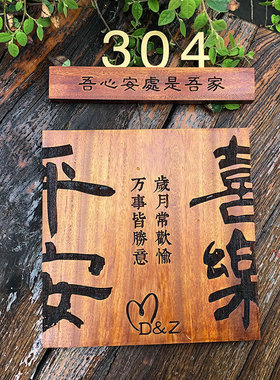 304
吾心安處是吾家
喜樂
歲月常歡愉
万事皆勝意
平安
D&Z